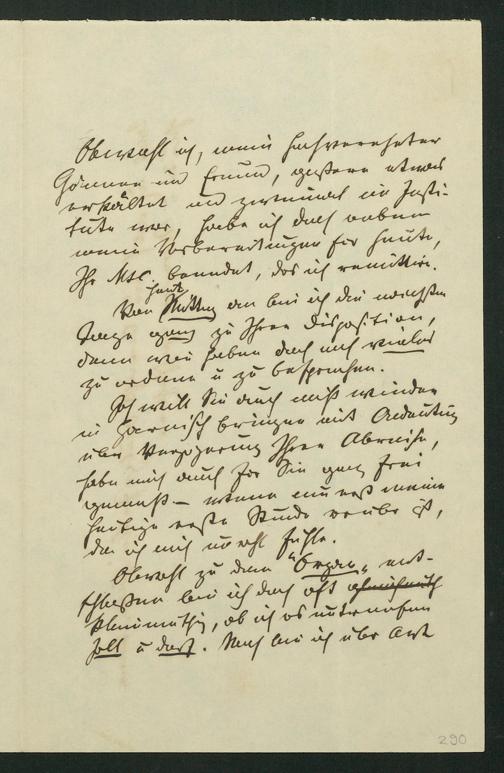 Obwohl ich, mein hochverehrter
Gönner und Freund, gestern etwas
erkältet und zweimal im Insti-
tute war, habe ich doch neben
meinen Vorbereitungen für heute,
Ihr Msc. beendet, das ich remittire.
Von heute Mittag an bin ich die nächsten
Tage ganz zu Ihrer Disposition,
denn wir haben doch noch vieles
zu ordnen u zu besprechen.
Ich will Sie durch nicht wieder
in Harnisch bringen mit Andeutung
über Verzögerung Ihrer Abreise,
habe mich auch für Sie ganz frei
gemacht – wenn nur erst meine
heutige erste Stunde vorüber ist,
da ich mich unwohl fühle.
Obwohl zu dem "Organ" ent-
schlossen bin ich doch oft
kleinmüthig, ob ich es unternehmen
soll u darf. Noch bin ich über
290